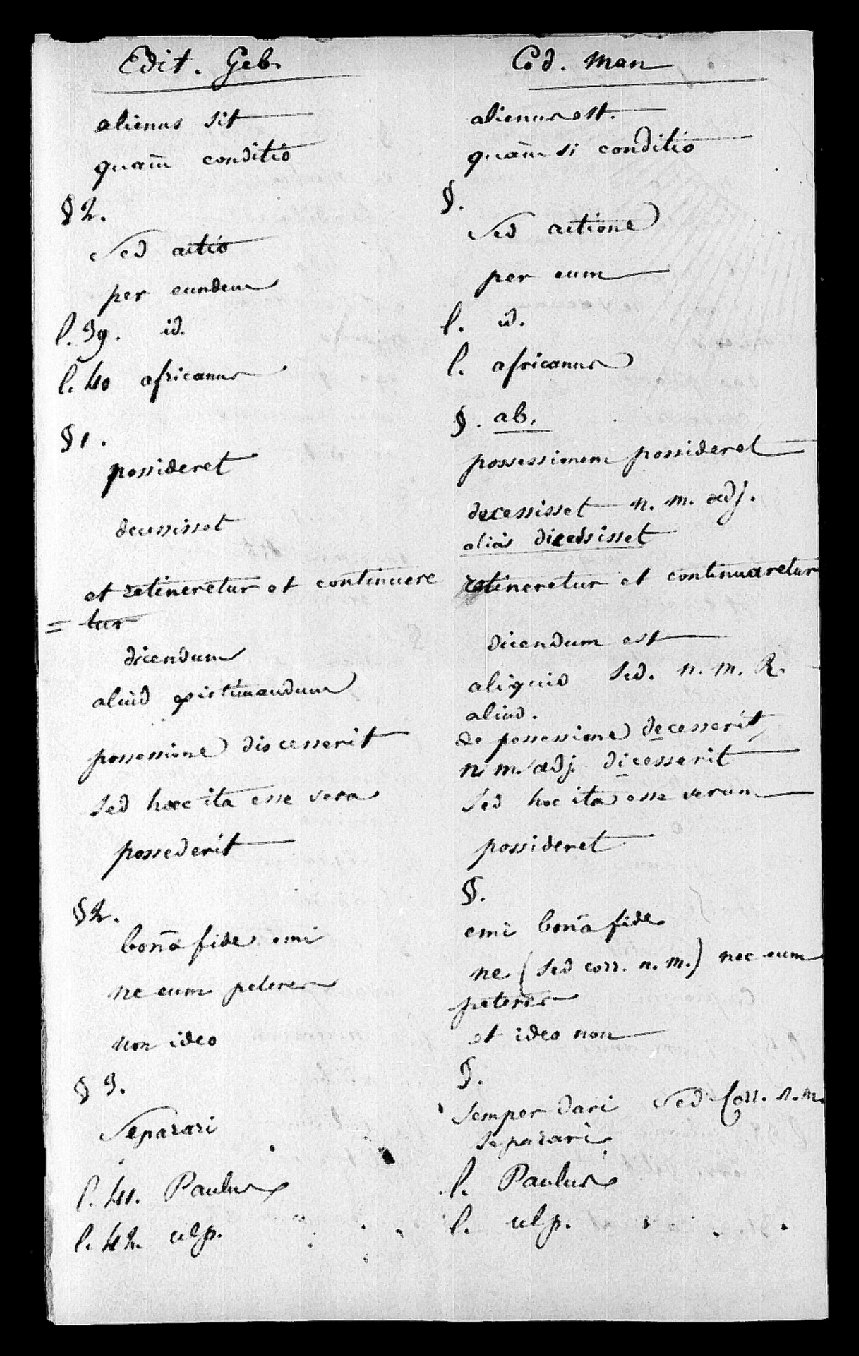 Edit. Geb. Cod. Man
alienus sit alienus est.
quam̄ conditio quam̄ si conditio
§ 2. §.
Sed actio Sed actione
per eundem per eum
l. 39. id. l. id.
l. 40 africanus l. africanus
§ 1. §. ab.
possideret possessionem possideret
decessisset decessisset n. m. adj.
alias dicessisset
et retineretur et continuere retineretur et continuaretur
= tur
dicendum dicendum est
aliud existimandum aliquid Sed. n. m. R.
aliud.
possessione discesserit de possessione decesserit
n. m. adj. dicesserit
sed haec ita esse vera sed hoc ita esse verum
possederit possideret
§ 2. §.
bonā fide emi emi bonā fide
ne eum peteres ne (sed corr. n. m.) nec eum
peteres
non ideo et ideo non
§ 3. §.
Separari semper dari sed Corr. n. m.
separari
l. 41. Paulus l. Paulus
l. 42. ulp. l. ulp.